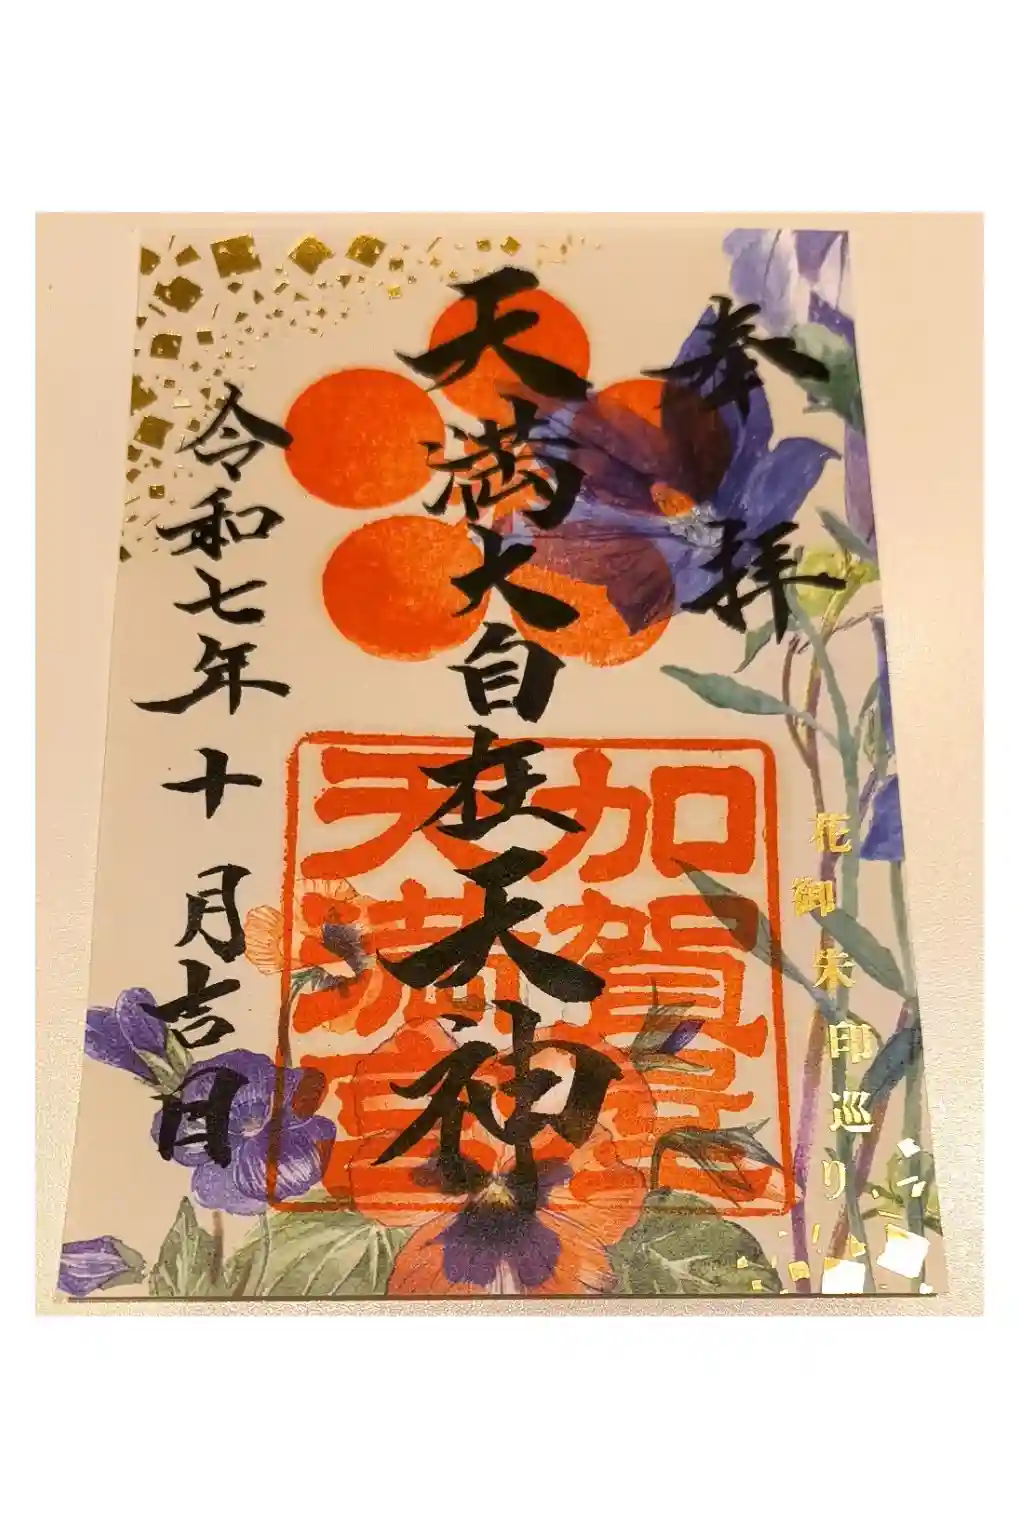 奉拝
天満大自在天神
令和七年十月吉日
加賀星
天満宮
花御朱印巡り